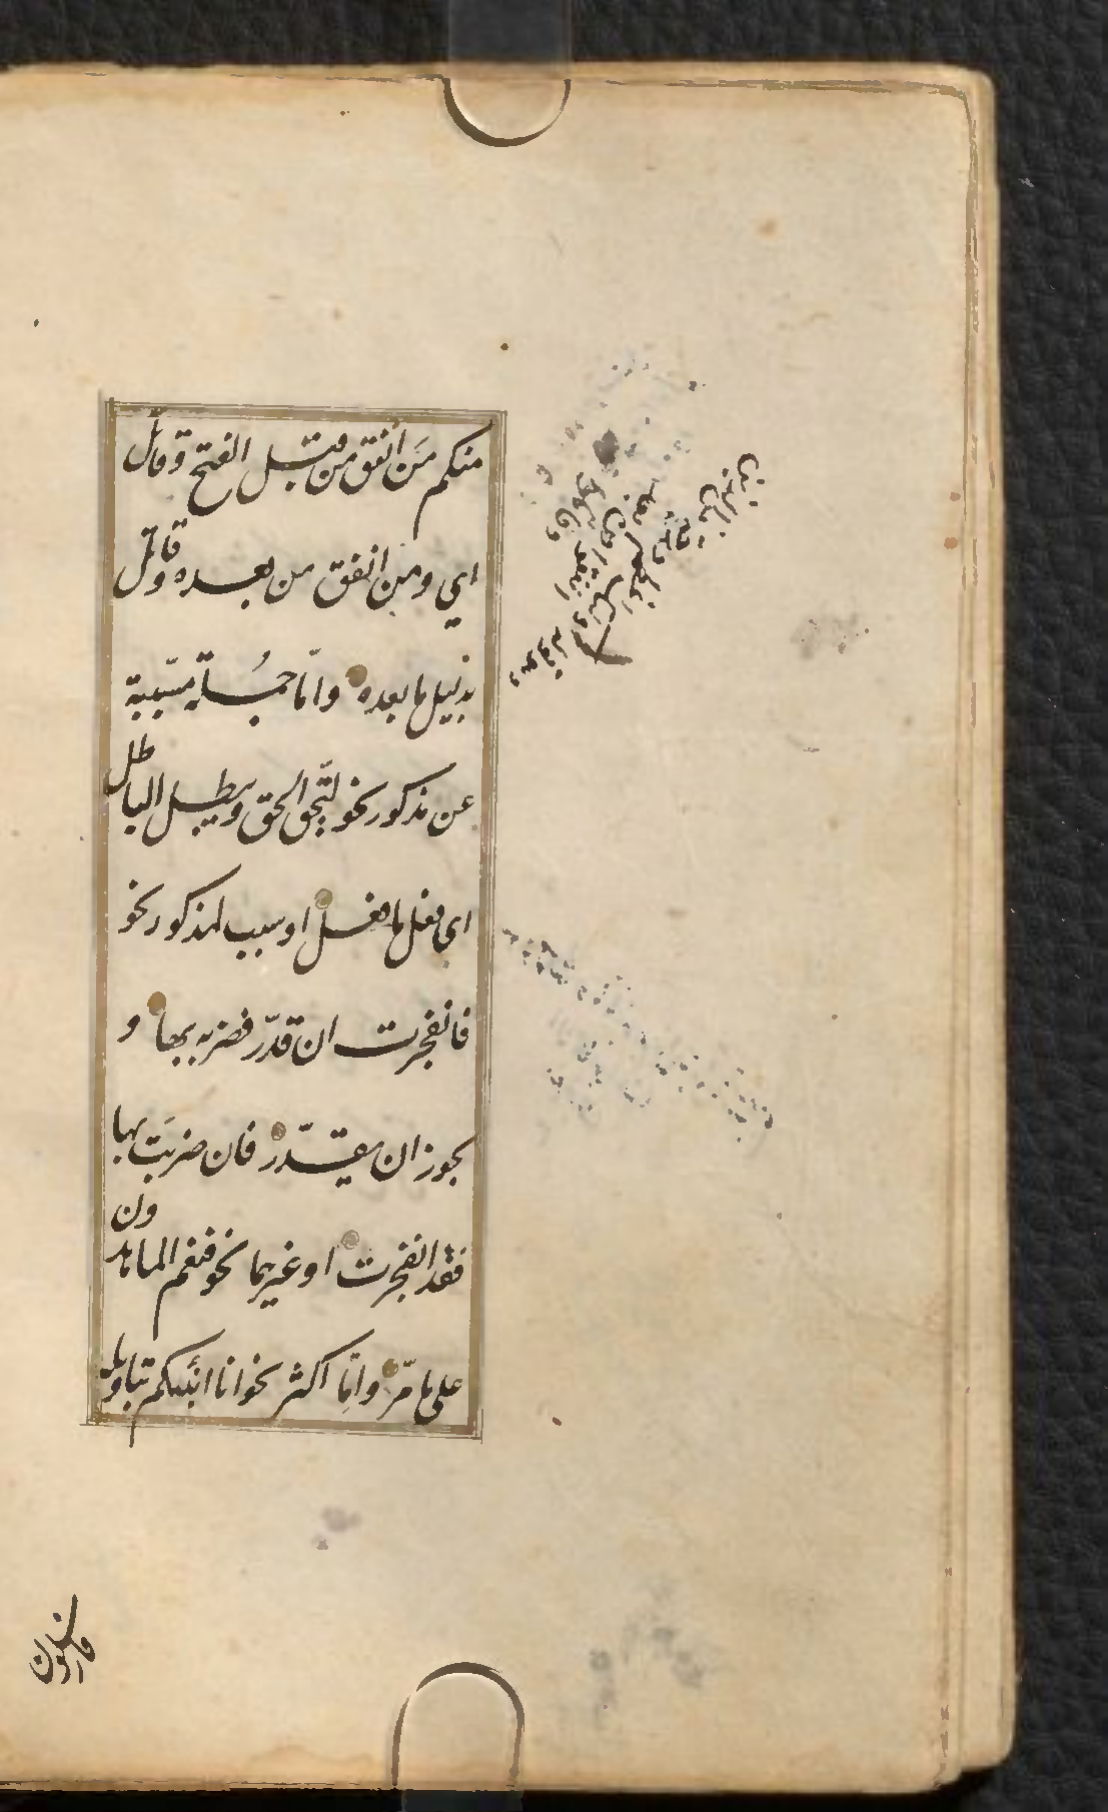 منكم مَن انفق من قبل الفتح وقاتل
اي ومن انفق من بعده وقاتل
بدليل ما بعده وامّا جُملة مسّببة
عن مذكور نحو ليحّق الحق ويبطل الباطل
اي فعل ما فعل او سبب لمذكور نحو
فانفجرت ان قدّر فضربه بها و
يجوز ان يقدّر فان ضربَت بها
فقد انفجرت او غيرهما نحو فنعم الماهدون
على ما مرّ وامّا اكثر نحو انا انبئكم بتاويله
وهو قوله
اولئك اعظم درجة من الذين
انفقوا من بعد
وقاتلوا
فارسلون